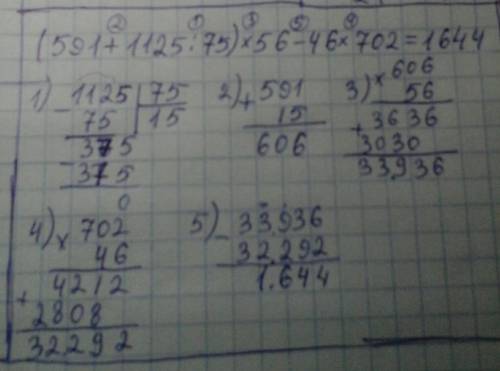 (591+1125:75)×56-46×702=1644
② ① ③ ⑤ ④
1) -1125 | 75
75 | 15
-375
375
0
2) +591
15
606
3) ×606
56
+3636
3030
33936
4) ×702
46
+4212
2808
32292
5) -33936
32292
1.644